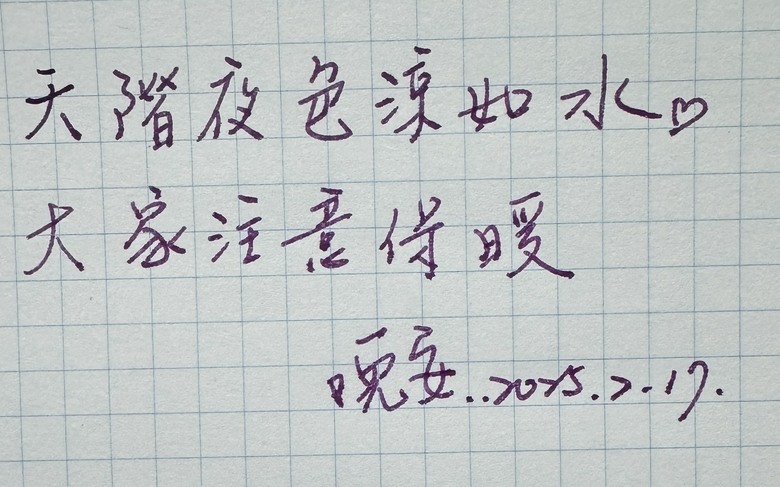 天階夜色涼如水♡
大家注意保暖
晚安..2025.2.17.